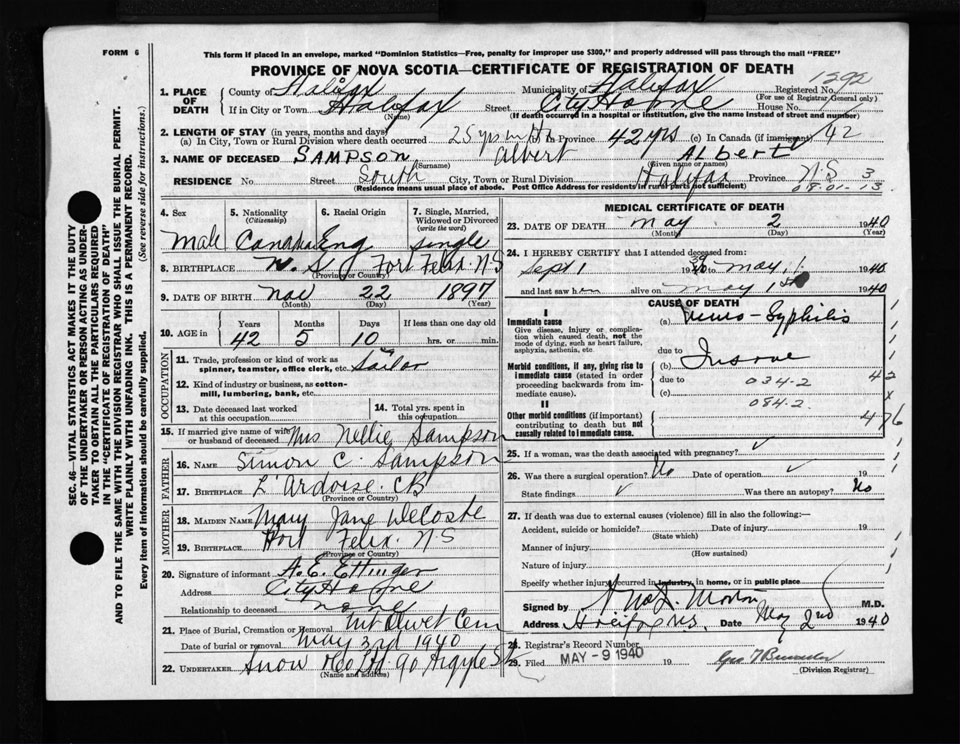 FORM 6
This form if placed in an envelope, marked "Dominion Statistics—Free, penalty for improper use $300," and properly addressed will pass through the mail "FREE"
PROVINCE OF NOVA SCOTIA—CERTIFICATE OF REGISTRATION OF DEATH
1292
1. PLACE OF DEATH County of Halifax Municipality of Halifax Registered No.
(For use of Registrar General only)
If in City or Town Halifax Street City Home House No.
(Name) (If death occurred in a hospital or institution, give the name instead of street and number)
2. LENGTH OF STAY (in years, months and days)
(a) In City, Town or Rural Division where death occurred 25 yrs (b) In Province 42 yrs (c) In Canada (if immigrant) 42
3. NAME OF DECEASED SAMPSON Albert ALBERT
(Surname) (Given name or names)
RESIDENCE No. Street South City, Town or Rural Division Halifax Province N.S 3
(Residence means usual place of abode. Post Office Address for residents in rural parts not sufficient) 08-01-13
4. Sex 5. Nationality (Citizenship) 6. Racial Origin 7. Single, Married, Widowed or Divorced (write the word)
Male Eng Single
8. BIRTHPLACE N.S Port Felix N.S
(Province or Country)
9. DATE OF BIRTH Nov 22 1897
(Month) (Day) (Year)
10. AGE in Years Months Days If less than one day old
42 5 10 hrs. or min.
OCCUPATION
11. Trade, profession or kind of work as spinner, teamster, office clerk, etc. Sailor
12. Kind of industry or business, as cotton-mill, lumbering, bank, etc.
13. Date deceased last worked at this occupation
14. Total yrs. spent in this occupation
15. If married give name of wife or husband of deceased Mrs Nellie Sampson
FATHER
16. NAME Simon C. Sampson
17. BIRTHPLACE L'Ardoise. CB
(Province or Country)
MOTHER
18. MAIDEN NAME Mary Jane DeCoste
19. BIRTHPLACE Port Felix. N.S
(Province or Country)
20. Signature of informant A. E. Ettinger
Address City Home
Relationship to deceased none
21. Place of Burial, Cremation or Removal Mt Olivet Cem
Date of burial or removal May 3rd 1940
22. UNDERTAKER Snow & Co Ltd 90 Argyle St
(Name and address)
MEDICAL CERTIFICATE OF DEATH
23. DATE OF DEATH May 2 1940
(Month) (Day) (Year)
24. I HEREBY CERTIFY that I attended deceased from:
Sept 1 19 to May 1 1940
and last saw him alive on May 1st 1940
CAUSE OF DEATH
I
Immediate cause (a) Neuro-Syphilis
Give disease, injury or complication which caused death, not the mode of dying, such as heart failure, asphyxia, asthenia, etc.
due to
Morbid conditions, if any, giving rise to immediate cause (stated in order proceeding backwards from immediate cause).
(b) Insane
due to 034-2 42
(c)
084-2
II
Other morbid conditions (if important) contributing to death but not causally related to immediate cause.
476
25. If a woman, was the death associated with pregnancy?
26. Was there a surgical operation? No Date of operation 19
State findings Was there an autopsy? No
27. If death was due to external causes (violence) fill in also the following:—
Accident, suicide or homicide? Date of injury 19
(State which)
Manner of injury
(How sustained)
Nature of injury
Specify whether injury occurred in industry, in home, or in public place
Signed by Morton M.D.
Address Halifax N.S. Date May 2nd 1940
28. Registrar's Record Number
29. Filed MAY - 9 1940 19
(Division Registrar)
SEC. 46—VITAL STATISTICS ACT MAKES IT THE DUTY
OF THE UNDERTAKER OR PERSON ACTING AS UNDERTAKER TO OBTAIN ALL THE PARTICULARS REQUIRED
IN THE "CERTIFICATE OF REGISTRATION OF DEATH"
AND TO FILE THE SAME WITH THE DIVISION REGISTRAR WHO SHALL ISSUE THE BURIAL PERMIT.
WRITE PLAINLY WITH UNFADING INK. THIS IS A PERMANENT RECORD.
Every item of information should be carefully supplied. (See reverse side for instructions.)